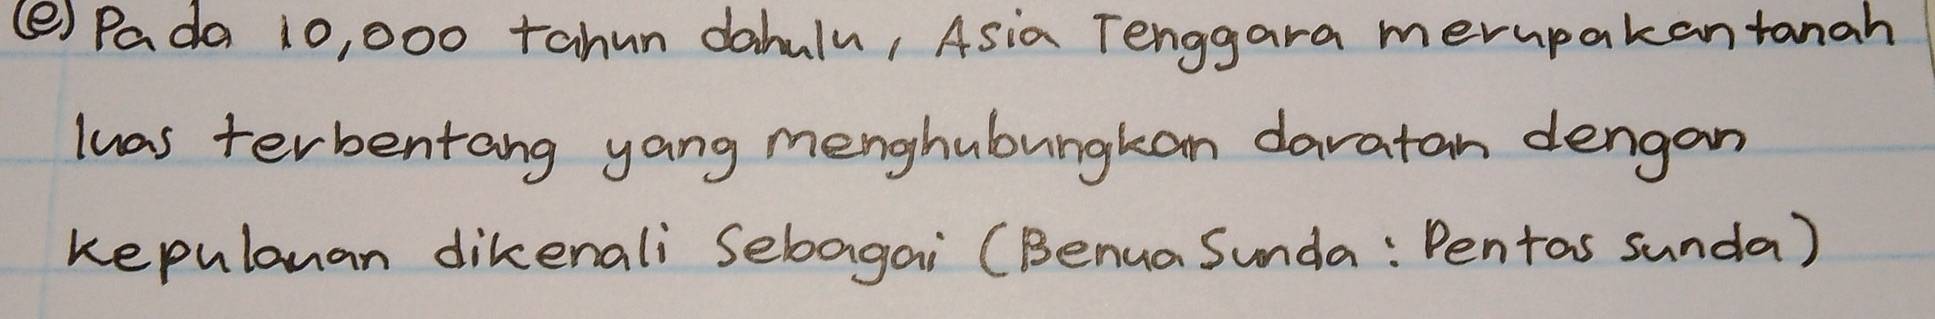 (e) Pada 10,000 tahun dahulu, Asia Tenggara merupakan tanah
luas terbentang yang menghubungkan daratan dengan
kepulauan dikenali sebagai (Benua Sunda : Pentas sunda)